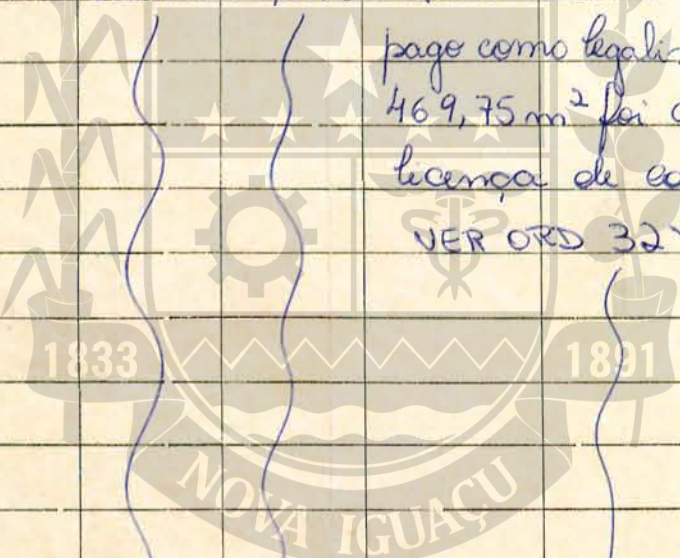 pago como legali
469,75 m² foi
licença de
VER ORD 32
1833
1891
NOVA IGUAÇU